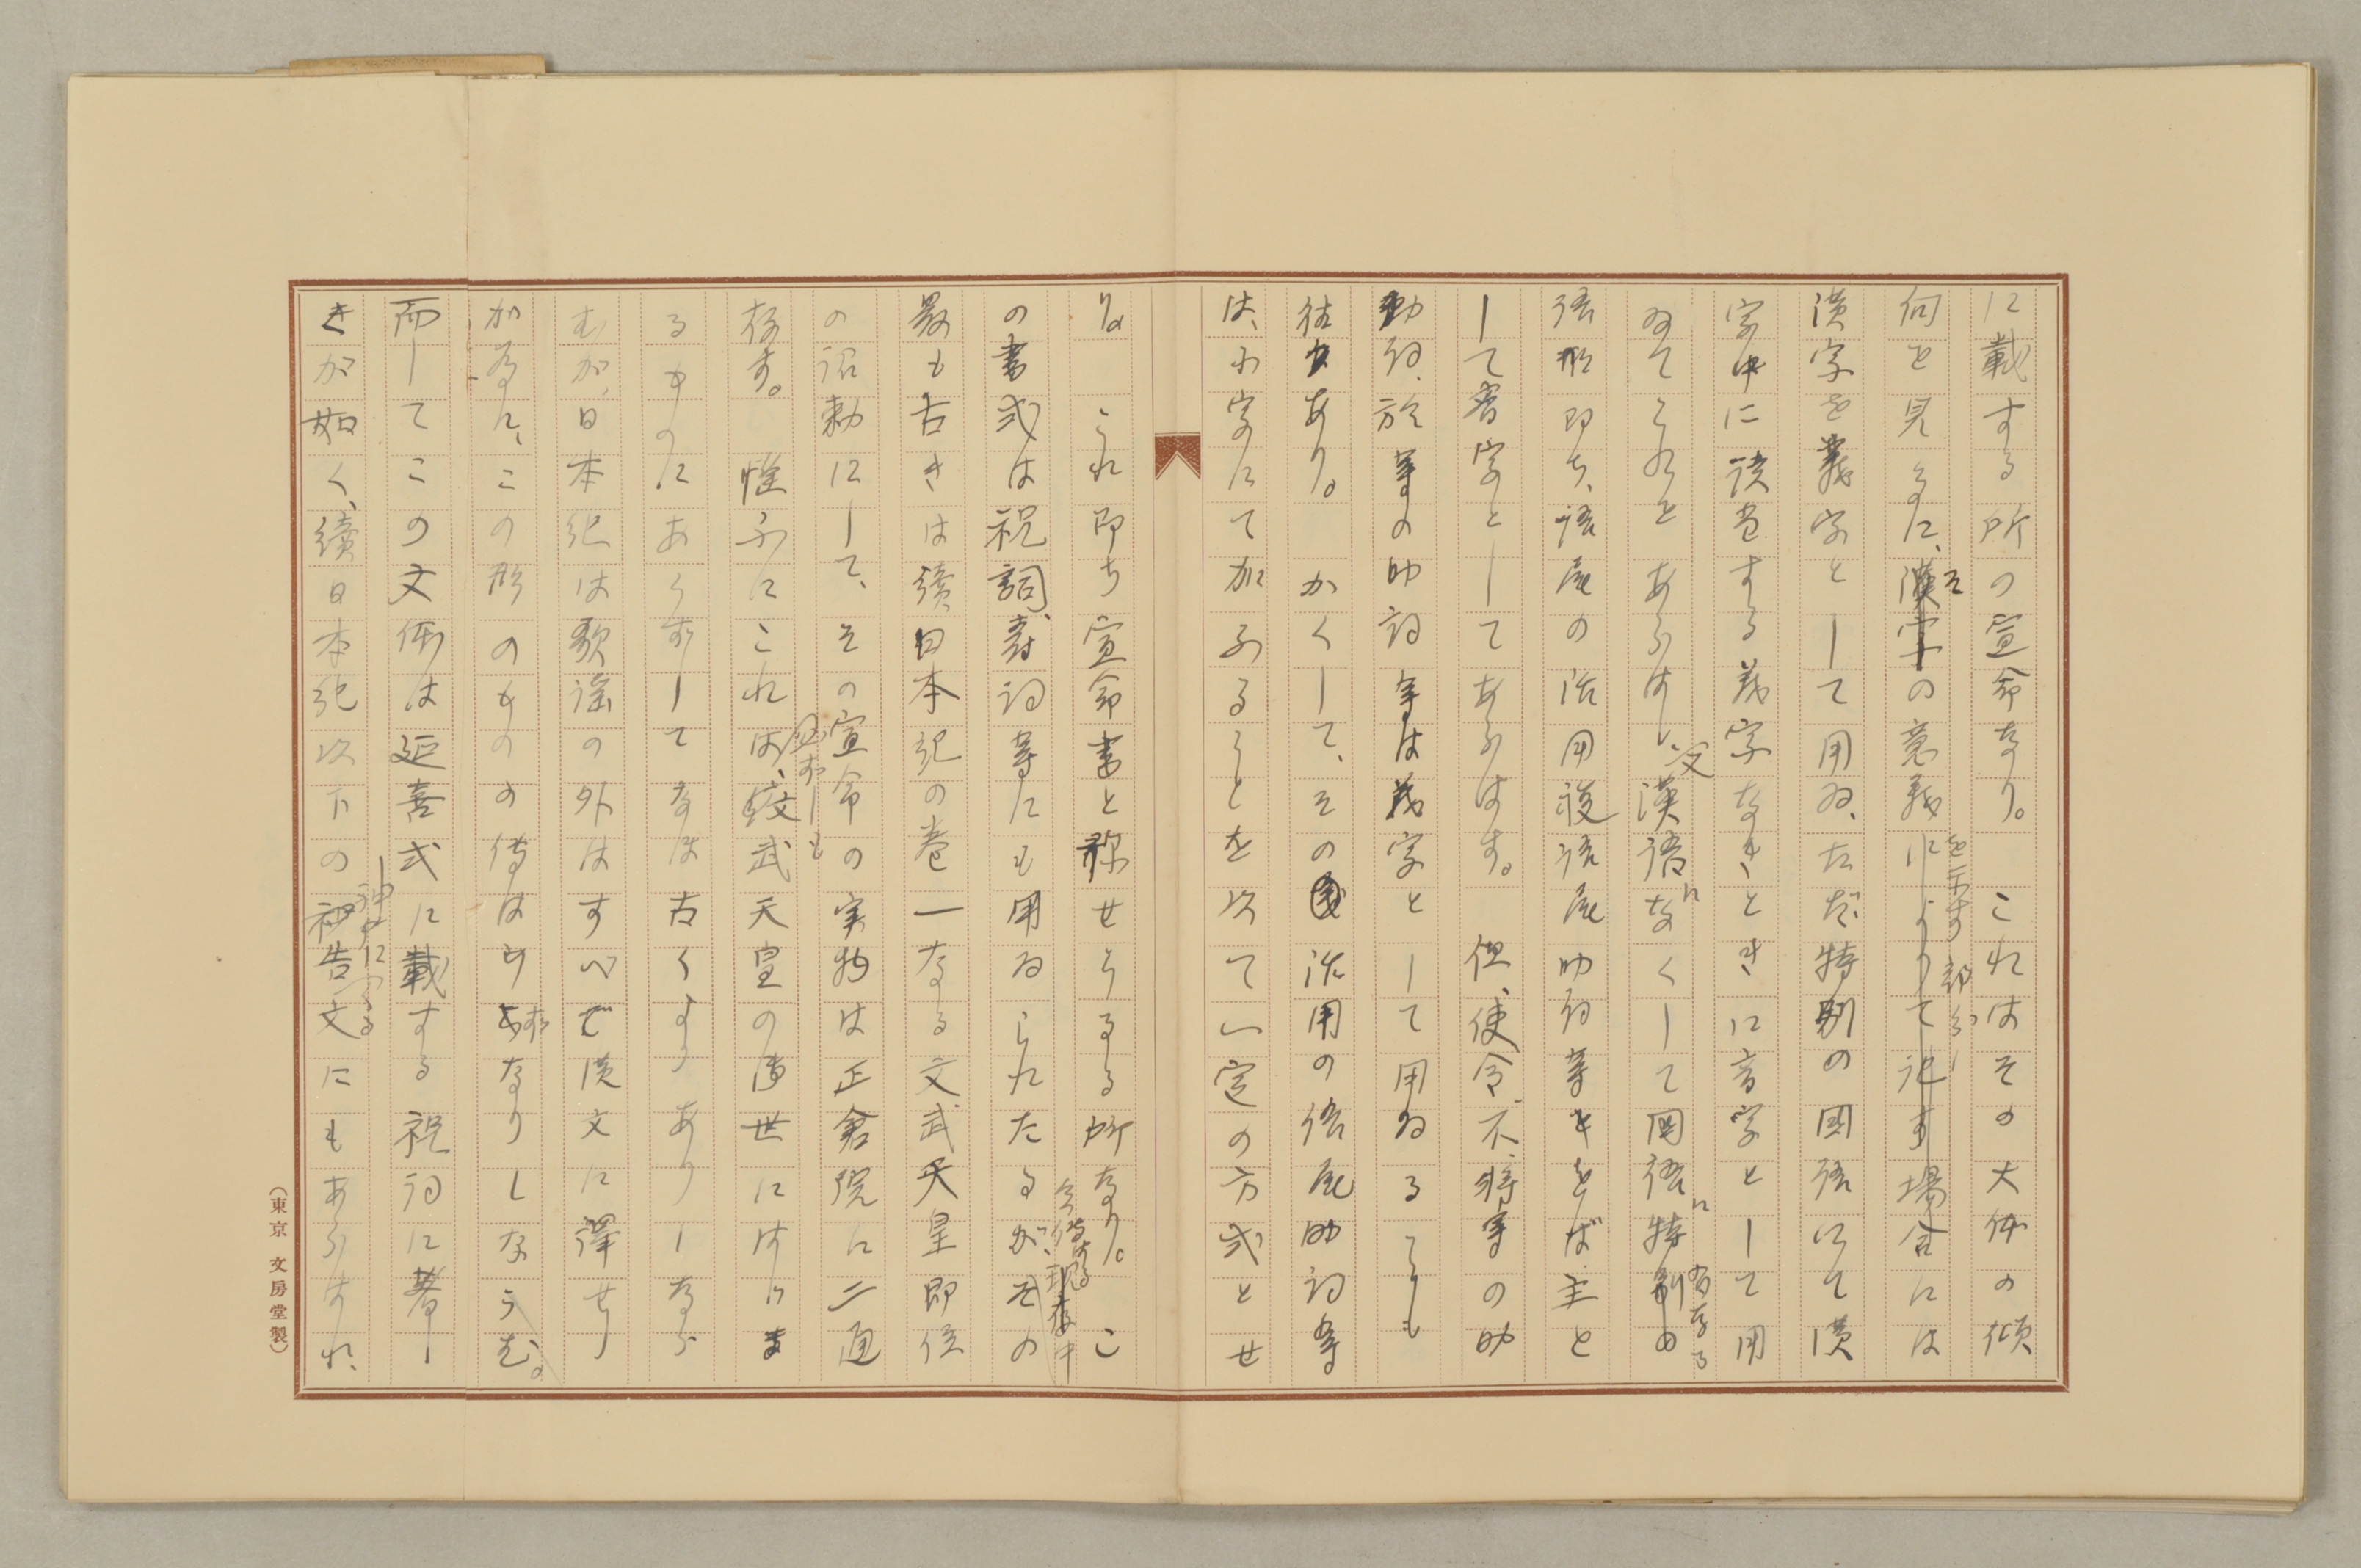 に載する所の宣命なり。これはその大体の傾
向を見るに、その意義を示す部分には
漢字を義字として用ゐ、ただ特別の国語にて漢
字中に該当する義字なきときに音字として用
ゐてこれをあらはし、又漢語になくして国語に特有なる
語形即ち、語尾の活用複語尾助詞等をば主と
して音字としてあらはす。但、使、令、不、将等の助
動詞、於等の助詞等は義字として用ゐることも
往々あり。かくして、その活用の語尾助詞等
は、小字にて加ふることを以て一定の方式とせ
り。これ即ち宣命書と称せらるる所なり。こ
の書式は祝詞、寿詞等にも用ゐられたるが、その
最も古きは続日本紀の巻一なる文武天皇即位
の詔勅にして、その宣命の実物は正倉院に二通
存す。惟ふにこれは、必ずしも文武天皇の御世にはじま
るものにあらずしてなほ古くよりありしなら
むが、日本紀は歌謡の外はすべて漢文に訳せり
加為に、この形のものの伝はらずなりしならむ。
而してこの文体は延喜式に載する祝詞に著し
きが如く、続日本紀以下の告文にもあらはれ、
(東京 文房堂製)